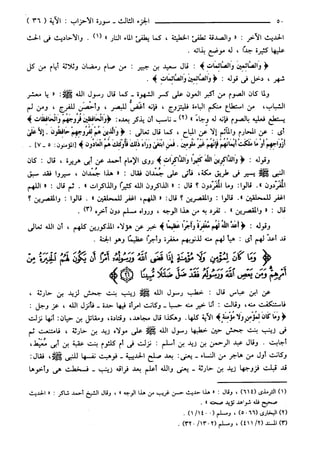 ٥٠ الجزء الثالث - سورة الأحزاب: الآية (٣٦)
الحديث الآخر: «والصدقة تطفئ الخطيئة، كما يطفئ الماء النار» (١). والأحاديث في الحث
عليها كثيرة جداً، له موضع بذاته.
﴿والصائمين والصائمات﴾: قال سعيد بن جبير: من صام رمضان وثلاثة أيام من كل
شهر، دخل في قوله: ﴿والصائمين والصائمات﴾.
ولما كان الصوم من أكبر العون على كسر الشهوة - كما قال رسول الله ﷺ: «يا معشر
الشباب، من استطاع منكم الباءة فليتزوج، فإنه أغض للبصر، وأحصن للفرج، ومن لم
يستطع فعليه بالصوم فإنه له وجاء» (٢) - ناسب أن يذكر بعده: ﴿والحافظين فروجهم والحافظات﴾
أي: عن المحارم والمآثم إلا عن المباح، كما قال تعالى: ﴿والذين هم لفروجهم حافظون . إلا على
أزواجهم أو ما ملكت أيمانهم فإنهم غير ملومين . فمن ابتغى وراء ذلك فأولئك هم العادون﴾ [المؤمنون: ٥ - ٧].
وقوله: ﴿والذاكرين الله كثيراً والذاكرات﴾ روى الإمام أحمد عن أبي هريرة، قال: كان
النبي ﷺ يسير في طريق مكة، فأتى على جُمدان فقال: «هذا جُمدان، سيروا فقد سبق
المُفَرِّدون». قالوا: وما المفردون؟ قال: «الذاكرون الله كثيراً والذاكرات». ثم قال: «اللهم
اغفر للمحلقين». قالوا: والمقصرين؟ قال: «اللهم، اغفر للمحلقين». قالوا: والمقصرين؟
قال: «والمقصرين». تفرد به من هذا الوجه، ورواه مسلم دون آخره (٣).
وقوله: ﴿أعد الله لهم مغفرة وأجراً عظيماً﴾ خبر عن هؤلاء المذكورين كلهم، أن الله تعالى
قد أعدّ لهم أي: هيأ لهم منه لذنوبهم مغفرة وأجراً عظيماً وهو الجنة.
﴿وما كان لمؤمن ولا مؤمنة إذا قضى الله ورسوله أمراً أن يكون لهم الخيرة من
أمرهم ومن يعص الله ورسوله فقد ضل ضلالاً مبيناً﴾
عن ابن عباس قال: خطب رسول الله ﷺ زينب بنت جحش لزيد بن حارثة،
فاستنكفت منه، وقالت: أنا خير منه حسباً - وكانت امرأة فيها حدة - فأنزل الله، عز وجل:
﴿وما كان لمؤمن ولا مؤمنة﴾ الآية كلها. وهكذا قال مجاهد، وقتادة، ومقاتل بن حيان: أنها نزلت
في زينب بنت جحش حين خطبها رسول الله ﷺ على مولاه زيد بن حارثة، فامتنعت ثم
أجابت. وقال عبد الرحمن بن زيد بن أسلم: نزلت في أم كلثوم بنت عقبة بن أبي مُعيط،
وكانت أول من هاجر من النساء - يعني: بعد صلح الحديبية - فوهبت نفسها للنبي ﷺ، فقال:
قد قبلت فزوجها زيد بن حارثة - يعني والله أعلم بعد فراقه زينب - فسخطت هي وأخوها
(١) الترمذي (٦١٤)، وقال: «هذا حديث حسن غريب من هذا الوجه»، وقال الشيخ أحمد شاكر: «الحديث
صحيح فله شواهد تؤيد صحته».
(٢) البخاري (٥٠٦٦)، ومسلم (١/١٤٠٠).
(٣) المسند (٤١١/٢)، ومسلم (٣٢٠/١٣٠٢).